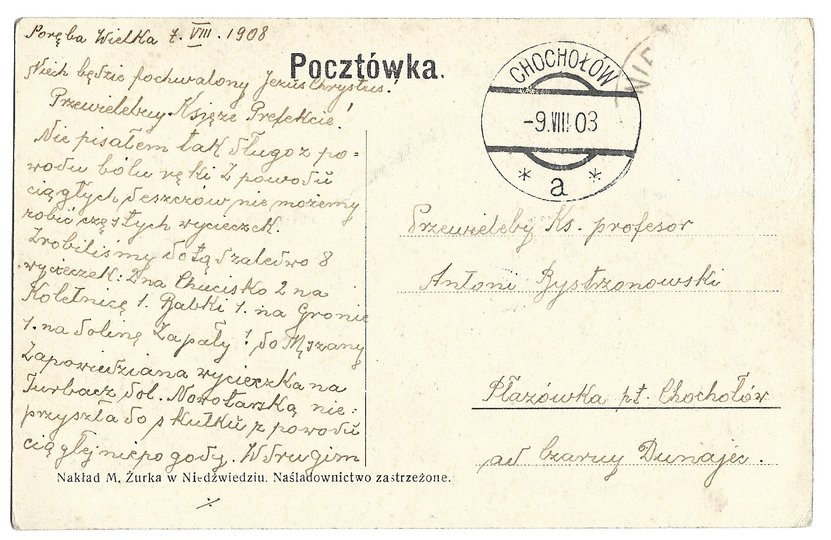 Poręba Wielka 7. VIII. 1908
Pocztówka.
Niech będzie pochwalony Jezus Chrystus.
Przewielebny Księże Prefekcie!
Nie pisałem tak długo z po=
wodu bólu ręki z powodu
ciągłych deszczów nie możemy
robić częstych wycieczek.
Zrobiliśmy dotąd zaledwo 8
wycieczek: 2 na Chucisko 2 na
Koletnicę 1. Babki 1. na Gronie
1. na dolinę Zapały 1 do Mszany
Zapowiedziana wycieczka na
Turbacz dol. Nowotarską nie=
przyszła do skutku z powodu
ciągłej niepogody. W drugim
CHOCHOŁÓW
-9.VIII 03
* a *
Przewieleby Ks. profesor
Antoni Bystrzonowski
Płazówka pt. Chochołów
ad Czarny Dunajec.
Nakład M. Żurka w Niedźwiedziu. Naśladownictwo zastrzeżone.